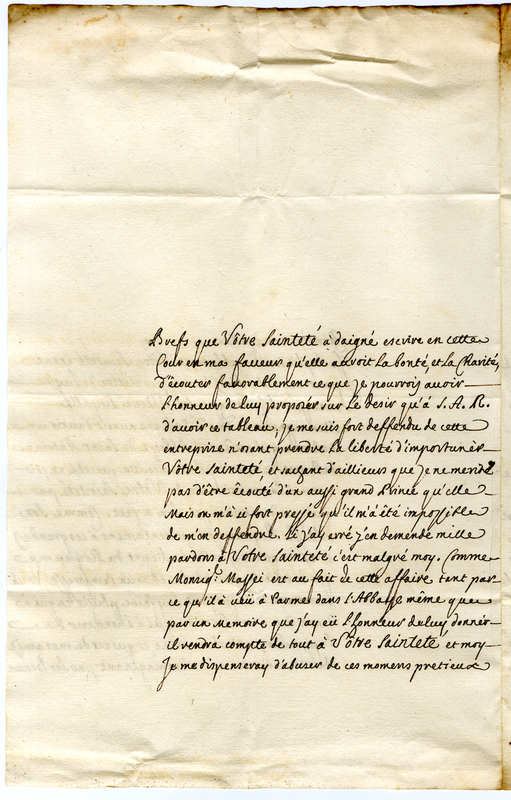 Brefs que Vôtre Sainteté à daigné escrire en cette
Cour en ma faveur qu'elle auroit la bonté, et la Charité,
d'écouter favorablement ce que je pourrois avoir
l'honneur de luy proposer sur le desir qu'à S. A. R.
d'avoir ce tableau; je me suis fort deffendu de cette
entreprise n'osant prendre la liberté d'importuner
Vôtre Sainteté, et sachant d'aillieurs que je ne merite
pas d'être écouté d'un aussi grand Prince qu'elle
Mais on m'à si fort pressé qu'il m'à été impossible
de m'en deffendre. Si j'ay erré j'en demende mille
pardons à Vôtre Sainteté c'est malgré moy. Comme
Monsig.r Massei est au fait de cette affaire tant par
ce qu'il à veü à Parme dans l'Abbaye même que
par un Memoire que j'ay eü l'honneur de luy donner
il rendrà compte de tout à Vôtre Sainteté et moy
Je me dispenseray d'abuser de ces momens pretieux